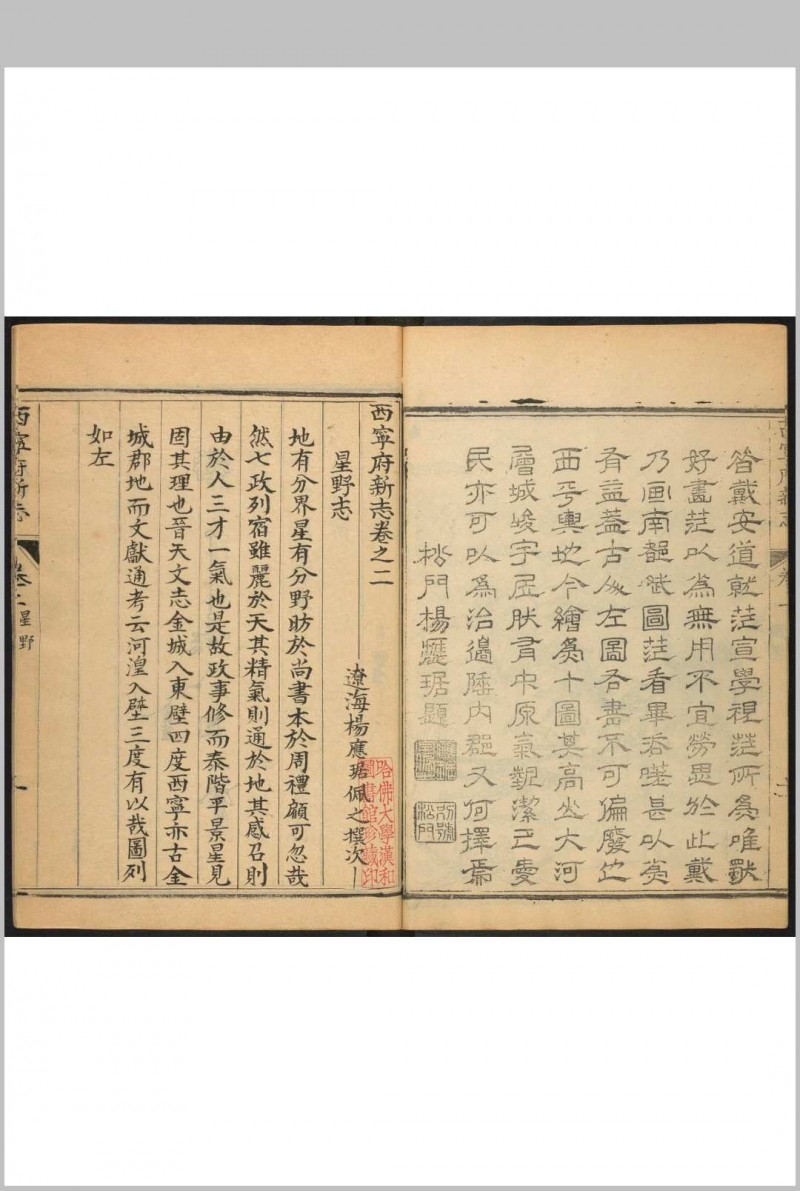 昝戴安道就范宣學視范所為唯獸
好畫范以為無用不宜勞思於此戴
乃画南都賦圖范看畢咨嗟甚以為
有益蓋古人左圖右書不可偏廢也
西平輿地今繪為十圖其高山大河
層城峻宇居肰有中原氣觀潔己愛
民亦可以為治邊陲內郡又何擇焉
松門楊應琚題
別號松門
西寧府新志 卷一
西寧府新志卷之二
遼海楊應琚佩之撰次
哈佛大學漢和圖書館珍藏印
星野志
地有分界星有分野昉於尚書本於周禮顧可忽哉
然七政列宿雖麗於天其精氣則通於地其感召則
由於人三才一氣也是故政事修而泰階平景星見
固其理也晉天文志金城入東壁四度西寧亦古金
城郡地而文獻通考云河湟入壁三度有以哉圖列
如左
西寧府新志 卷之二 星野 一